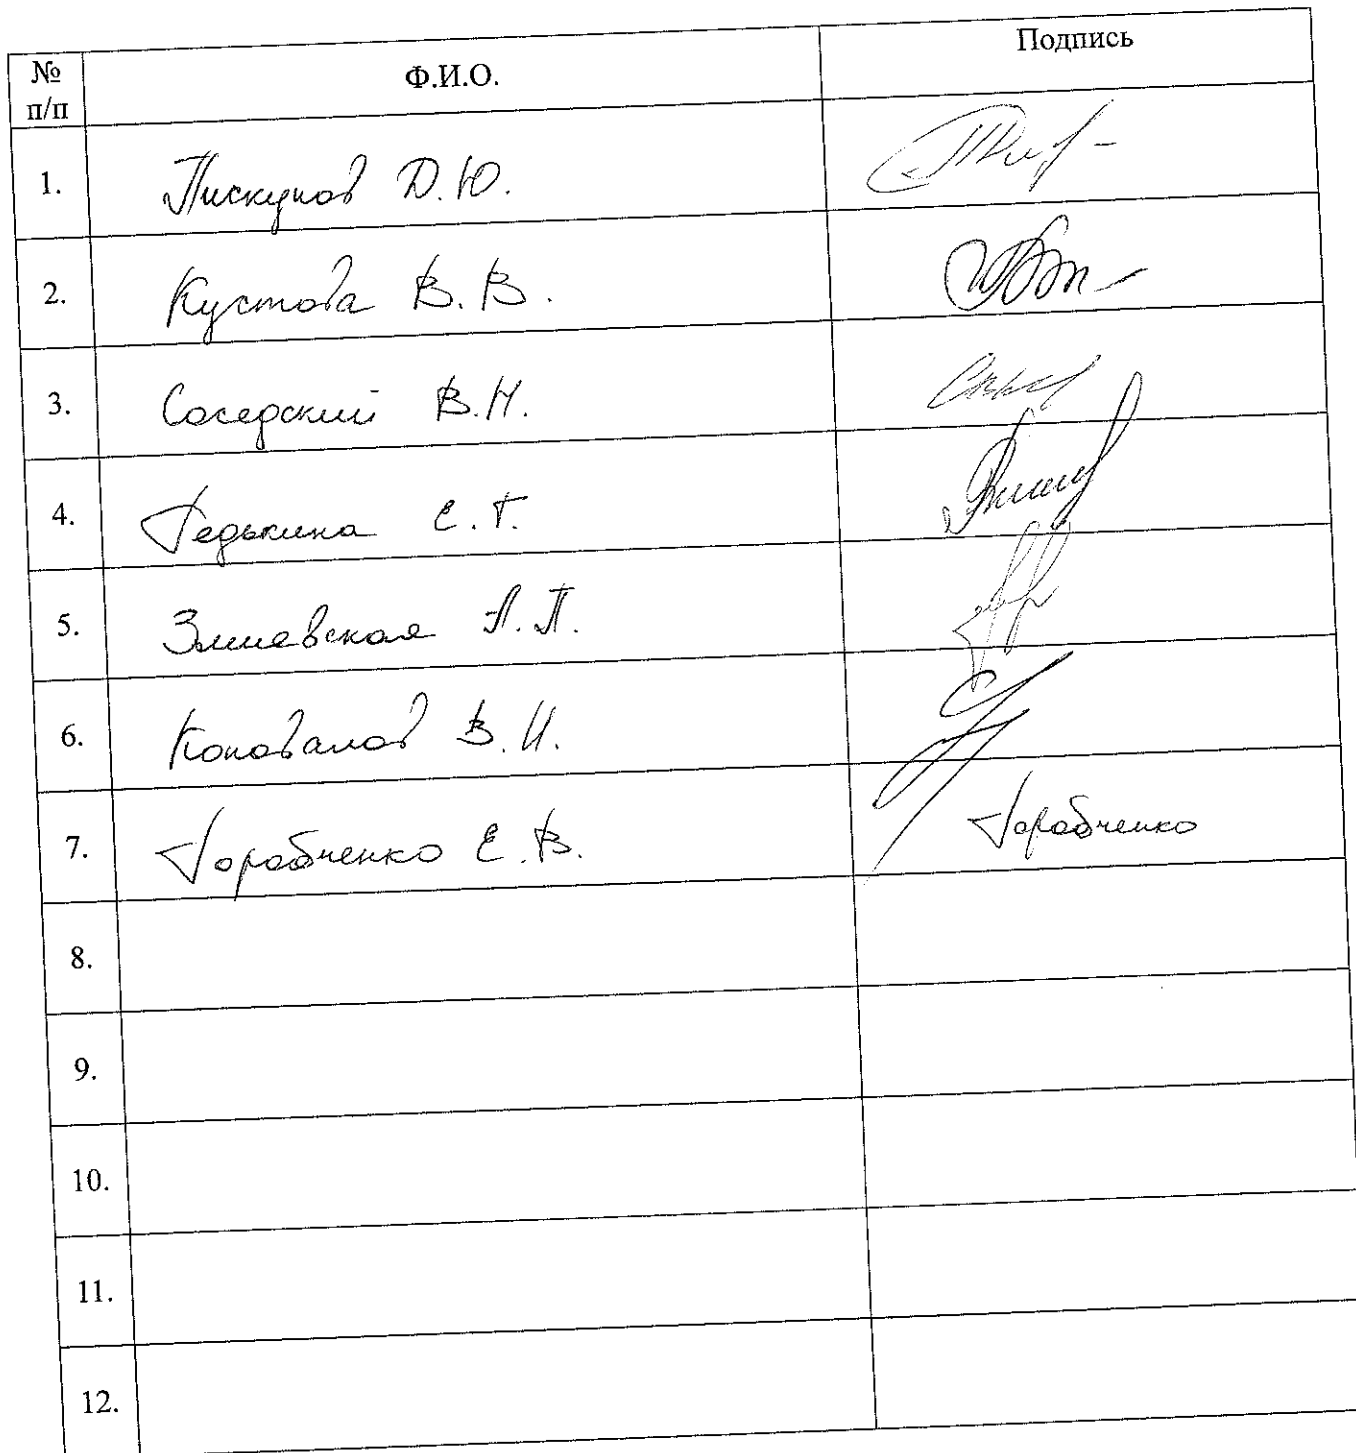 № п/п Ф.И.О. Подпись
1. Пискунов Д.Ю.
2. Кустова В.В.
3. Соседский В.Н.
4. Редькина Е.Г.
5. Змиевская Л.П.
6. Коновалов В.И.
7. Горабченко Е.В. Горабченко
8.
9.
10.
11.
12.